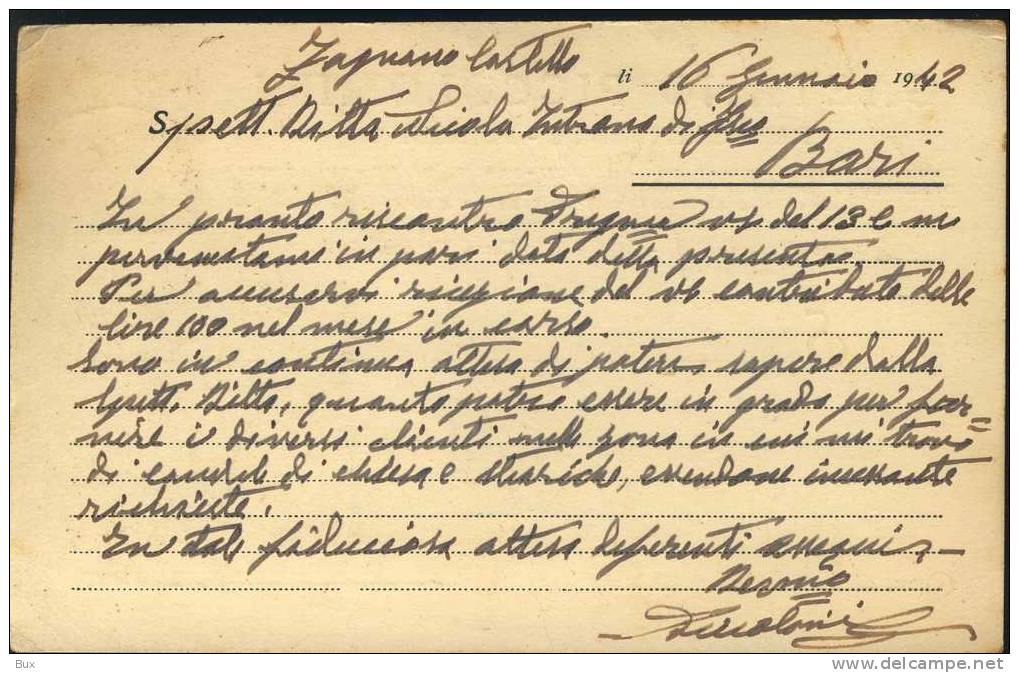 Fagnano Castello li 16 Gennaio 1942
Spett. Ditta Nicola di
Bari
In pronto riscontro vs del 13 c m
pervenutami in pari data
Per accusarvi ricezione del vs contributo delle
lire 100 nel mese in corso.
Sono in continua attesa di potere sapere dalla
Spett. Ditta, quanto potrò essere in grado per for=
nire i diversi clienti nella zona in cui mi trovo
di candele di chiesa e steariche, essendone incessante
richieste.
In tale fiduciosa attesa deferenti ossequi,—
Bux
www.delcampe.net